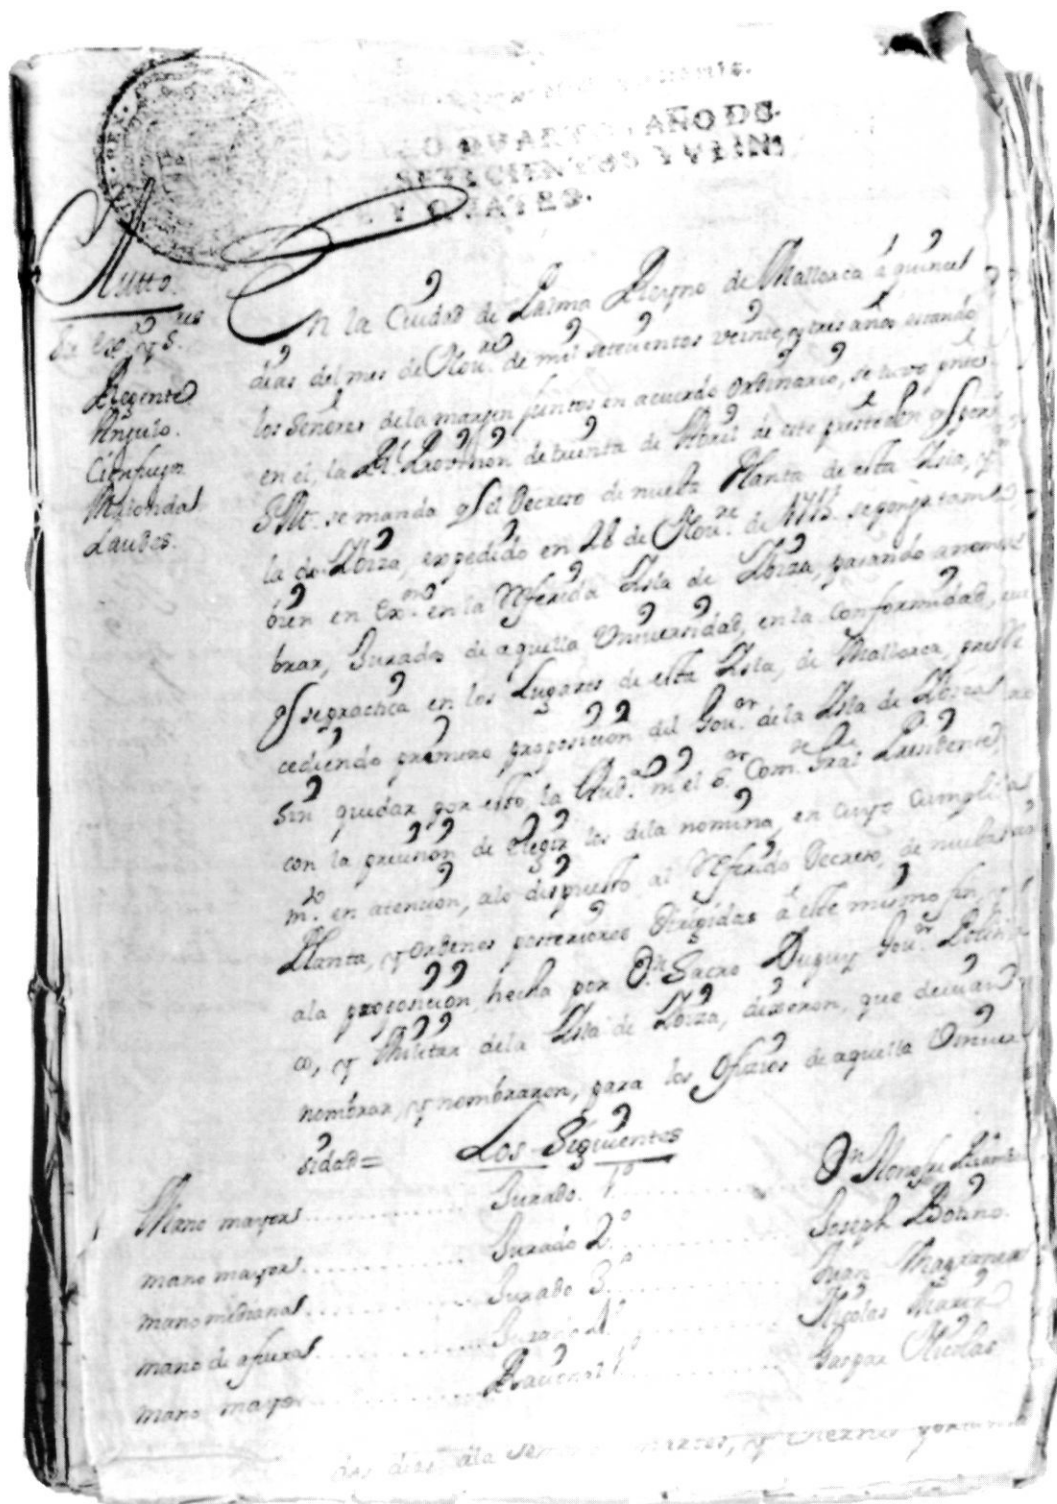 QUARTO, AÑO DE
SETECIENTOS Y VEIN
Y QUATRO.
Autto.
En la Ciudad de Palma Reyno de Mallorca á quince
Ex.mo y S.res
dias del mes de Nov.re de mil setecientos veinte, y tres años, estando
Regente
los Señores de la margen juntos en acuerdo ordinario, se tuvo
Angulo.
en el, la R.l Provision de treinta de Abril de este
Cienfuegos
Malonda
S.M. se manda el Decreto de nueba Planta de esta Isla, y
Laudes.
la de Ibiza, expedido en 28 de Nov.re de 1715. se ponga tam
bien en ex.on en la referida Isla de Ibiza, pasando a nom
brar, Jurados de aquella Universidad, en la conformidad,
q se practica en los Lugares de esta Isla, de Mallorca,
cediendo primero proposicion del Gov.or de la Isla de Ibiza
sin quedar por esto, la Aud.a ni el Com.te Gral Presidente,
con la precision de elegir los de la nomina, en cuyo cumpli
m.to en atencion, a lo dispuesto al referido Decreto, de nueba
Planta, y ordenes posteriores dirigidas á este mismo fin, y
a la proposicion, hecha por D.n Sacro Duguy Gov.or Politi
co, y Militar de la Isla de Ibiza, dixeron, que devian
nombrar, y nombraron, para los oficios de aquella Univer
sidad= Los Siguientes
Mano mayor ............ Jurado. 1º ............ D.n Onofre
mano mayor ............ Jurado 2º ............ Joseph Botino.
mano mediana ............ Jurado 3º ............ Juan
mano de afuera ............ Jurado 4º ............ Nicolas Marin
mano mayor ............ Racional 1º ............ Gaspar Nicolas
dos dias, de la martes, y viernes por